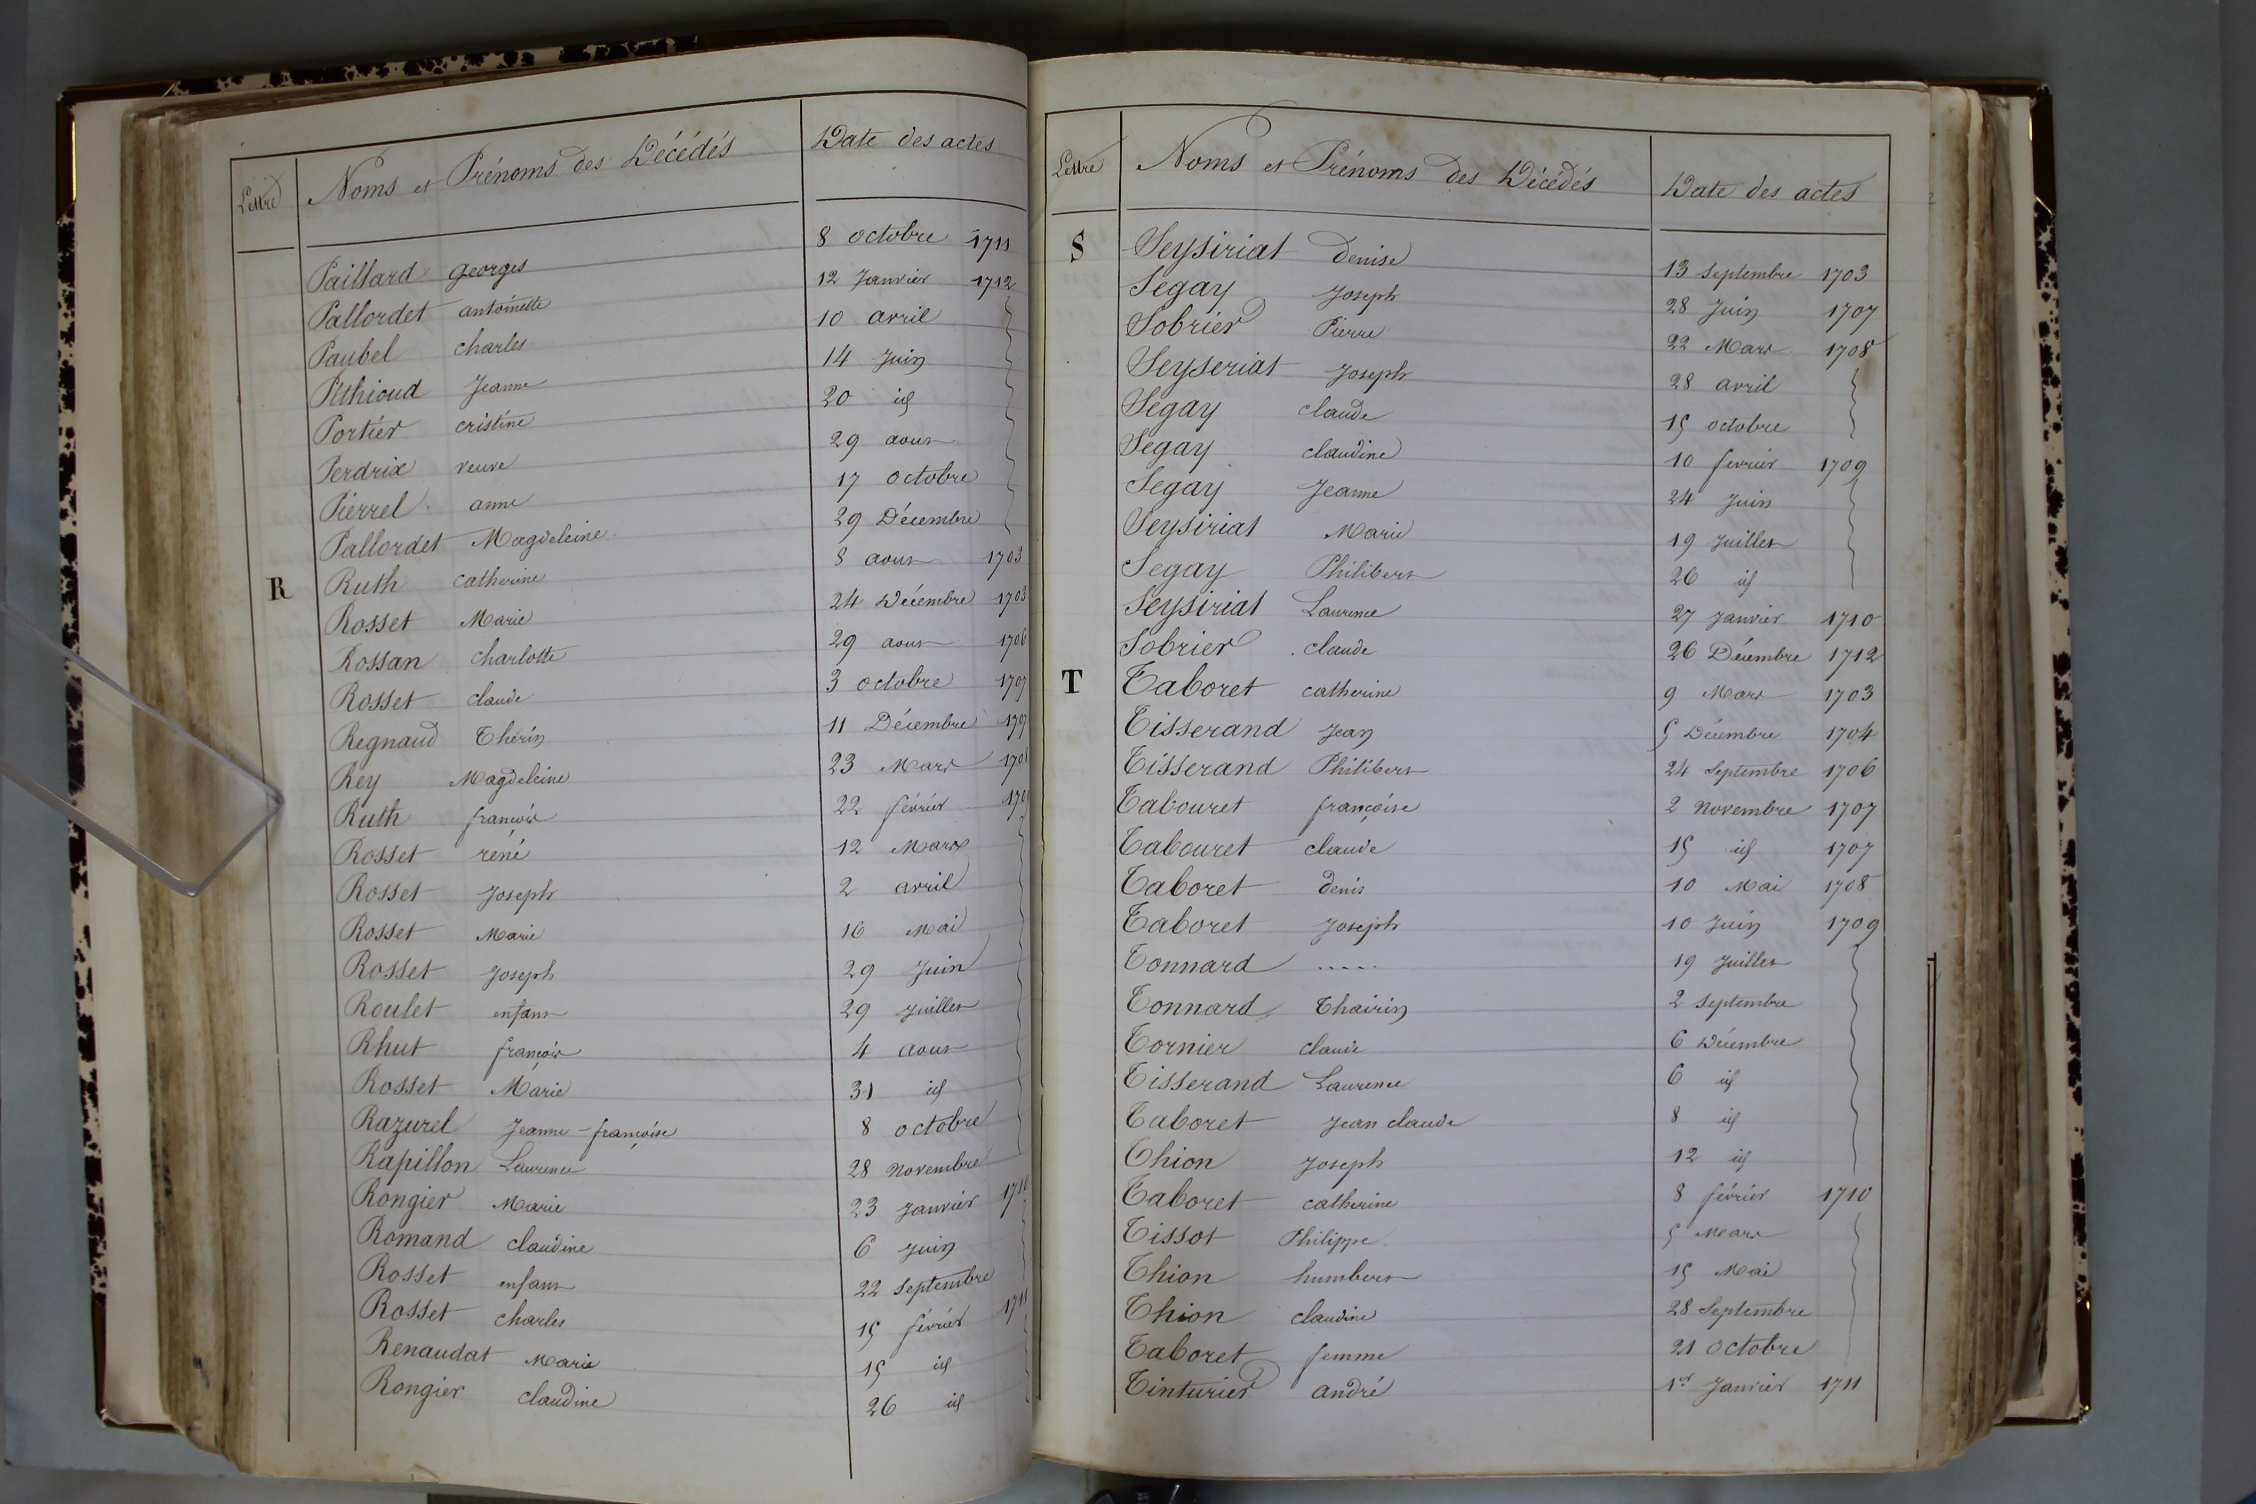 Lettre Noms et Prénoms des Décédés Date des actes
Paillard georges 8 octobre 1711
Pallordet antoinette 12 Janvier 1712
Paubel charles 10 avril
Péthioud Jeanne 14 Juin
Portier cristine 20 id
Perdrix veuve 29 aout
Pierrel anne 17 octobre
Pallordet Magdeleine 29 Décembre
R Ruth catherine 8 aout 1703
Rosset Marie 24 Décembre 1703
Rossan charlotte 29 aout 1706
Rosset claude 3 octobre 1707
Regnaud Thérin 11 Décembre 1707
Rey Magdeleine 23 Mars
Ruth françois 22 février
Rosset réné 12 Mars
Rosset Joseph 2 avril
Rosset Marie 16 Mai
Rosset Joseph 29 Juin
Roulet enfant 29 Juillet
Rhut françois 4 aout
Rosset Marie 31 id
Razurel Jeanne-françoise 8 octobre
Rapillon Laurence 28 novembre
Rongier Marie 23 Janvier 1710
Romand claudine 6 Juin
Rosset enfant 22 septembre
Rosset charles 15 février 1711
Renaudat Marie 15 id
Rongier claudine 26 id
Lettre Noms et Prénoms des Décédés Date des actes
S Seysiriat denise 13 septembre 1703
Segay Joseph 28 Juin 1707
Sobrier Pierre 22 Mars 1708
Seyseriat Joseph 28 avril
Segay claude 15 octobre
Segay claudine 10 fevrier 1709
Segay Jeanne 24 Juin
Seysiriat Marie 19 Juillet
Segay Philibert 26 id
Seysiriat Laurence 27 Janvier 1710
Sobrier claude 26 Décembre 1712
T Taboret catherine 9 Mars 1703
Tisserand Jean 5 Décembre 1704
Tisserand Philibert 24 septembre 1706
Tabouret françoise 2 novembre 1707
Tabouret claude 15 id 1707
Taboret denis 10 Mai 1708
Taboret Joseph 10 Juin 1709
Tonnard ..... 19 Juillet
Tonnard Thairin 2 septembre
Tornier claude 6 Décembre
Tisserand Laurence 6 id
Taboret Jean claude 8 id
Thion Joseph 12 id
Taboret catherine 8 février 1710
Tissot Philippe 5 Mars
Thion humbert 15 Mai
Thion claudine 28 septembre
Taboret femme 21 octobre
Tinturier andré 1er Janvier 1711